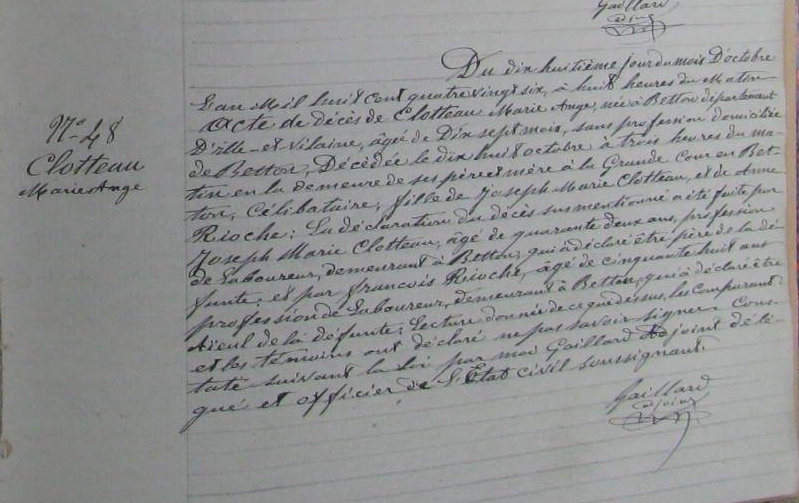 Gaillard
adjoint
N° 48
Clotteau
Marie Ange
Du dix huitième jour du mois D'octobre
L'an Mil huit cent quatre vingt six, à huit heures du Matin
Acte de décès de Clotteau Marie Ange, née à Betton département
D'ille-et-Vilaine, âgé de Dix sept mois, sans profession domiciliée
de Betton, Décédée le dix huit octobre à trois heures du ma-
tin en la demeure de ses père et mère à la Grande Cour en Bet-
ton, Célibataire, fille de Joseph Marie Clotteau, et de Anne
Rioche: La déclaration du décès susmentionné a été faite par
Joseph Marie Clotteau, âgé de quarante deux ans, profession
de Laboureur, demeurant à Betton, qui a déclaré être père de la dé-
funte, et par françois Rioche, âgé de cinquante huit ans
profession de Laboureur, demeurant à Betton, qui a déclaré être
aieul de la défunte; Lecture donnée de ce que dessus, les Comparant
et les témoins ont déclaré ne pas savoir signer Cons-
taté suivant la Loi par moi Gaillard Adjoint délé-
gué et officier de L'Etat civil soussignant.
Gaillard
adjoint